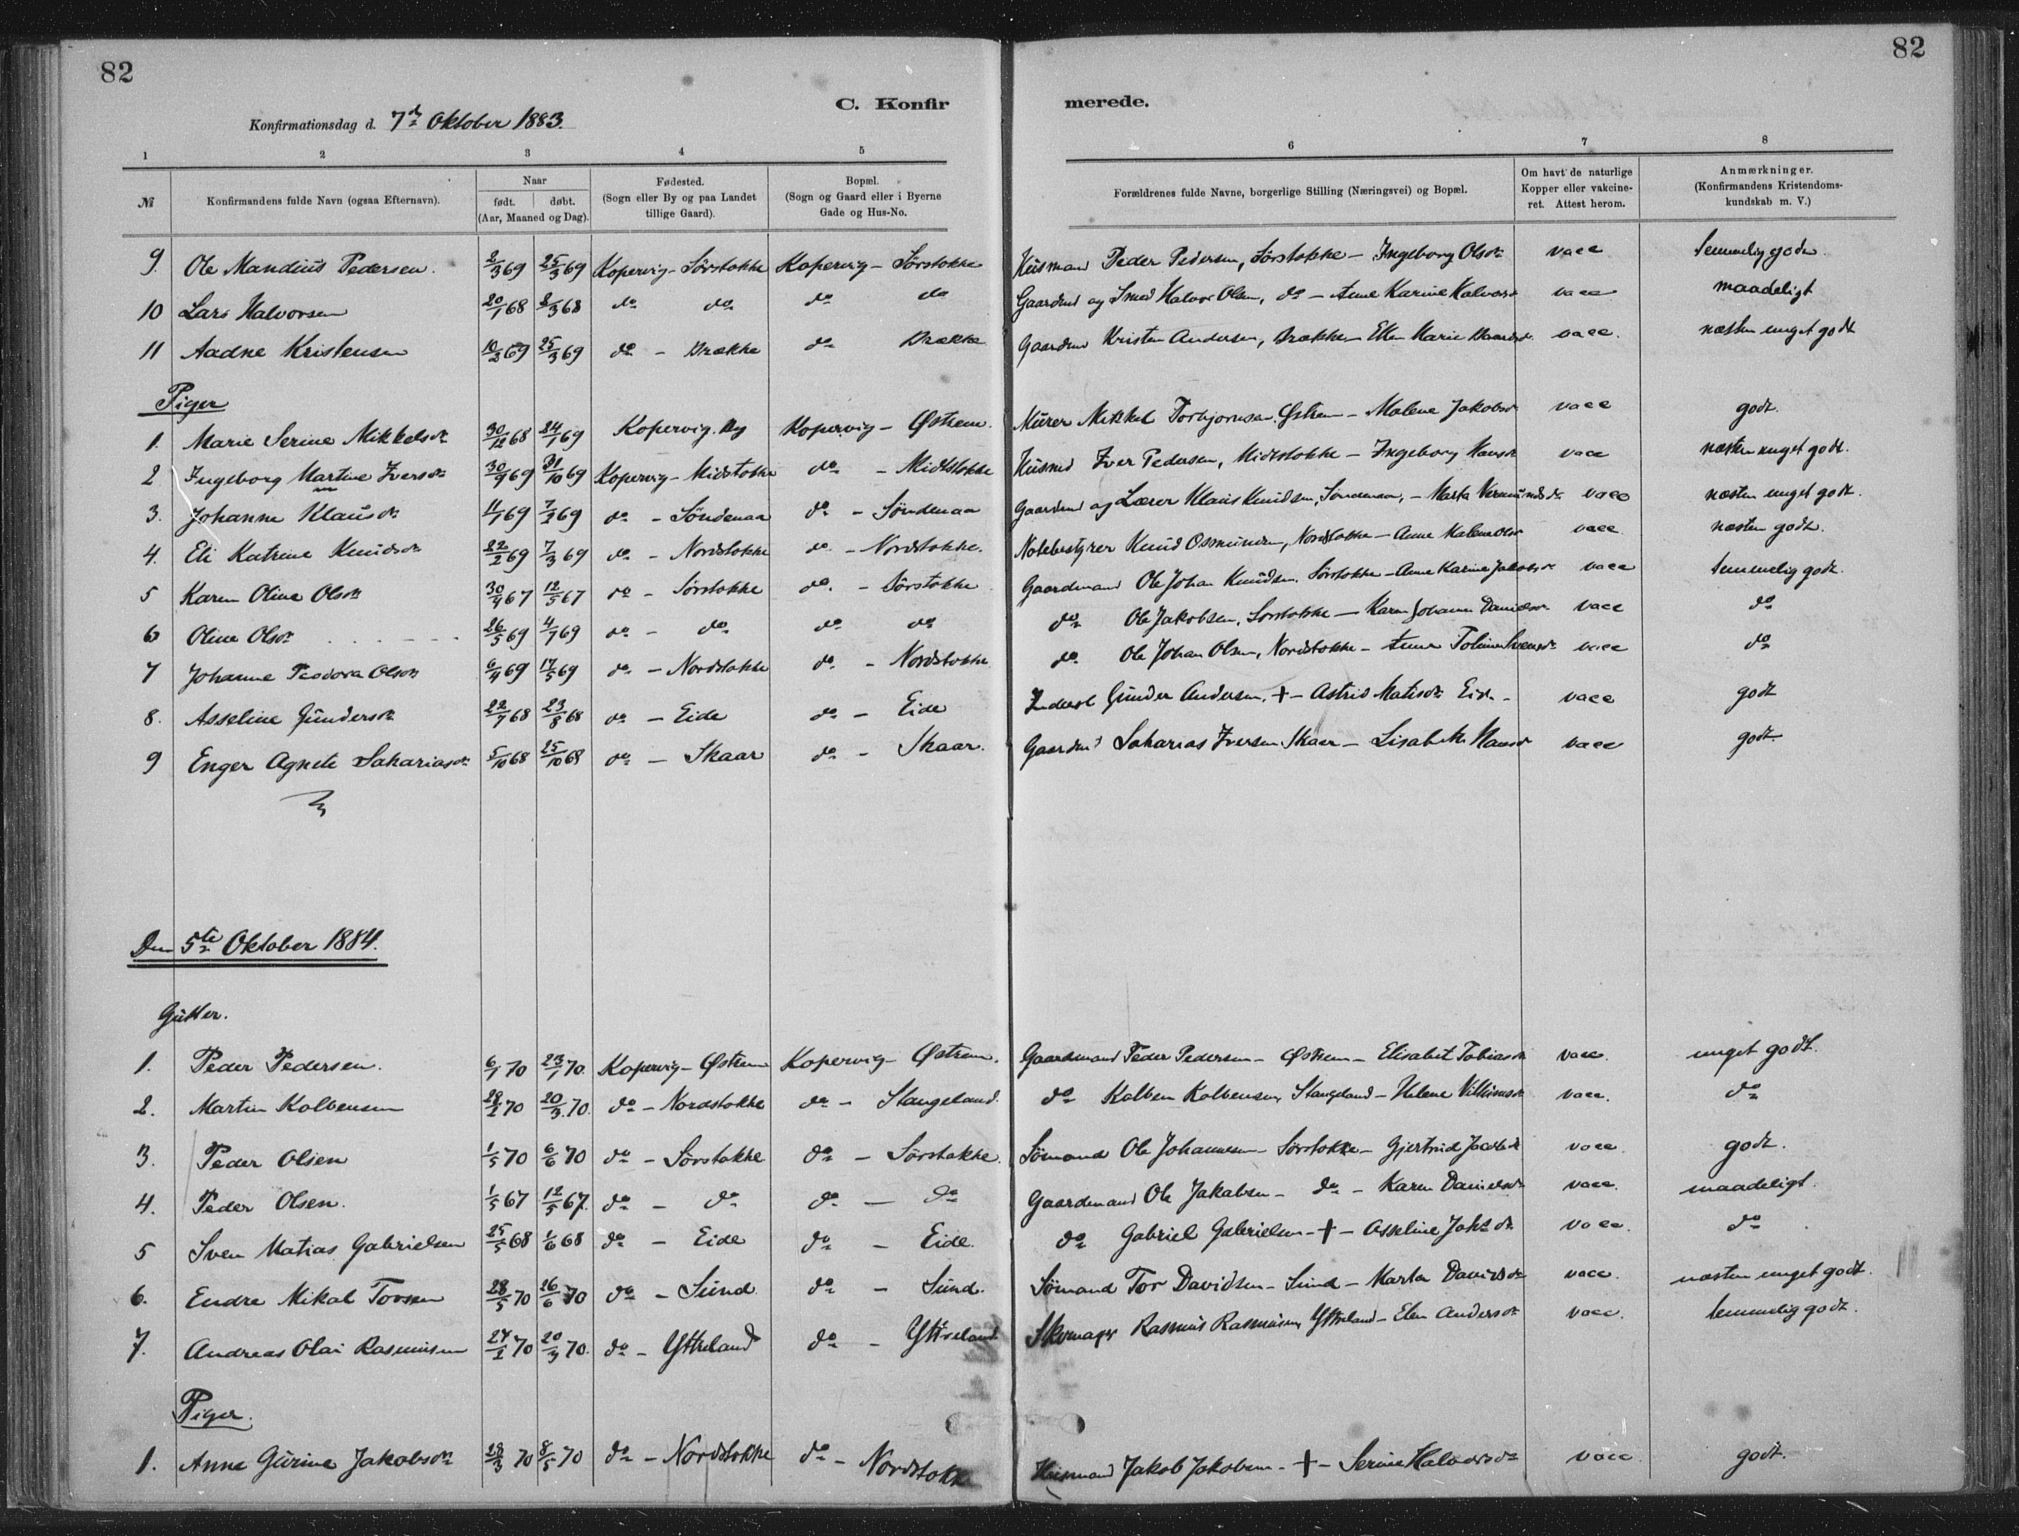 82
82
C. Konfir merede.
Konfirmationsdag d. 7de Oktober 1883.
1 2 3 4 5 6 7 8
№ Konfirmandens fulde Navn (ogsaa Efternavn). Naar født. døbt. (Aar, Maaned og Dag). Fødested. (Sogn eller By og paa Landet tillige Gaard). Bopæl. (Sogn og Gaard eller i Byerne Gade og Hus-No. Forældrenes fulde Navne, borgerlige Stilling (Næringsvei) og Bopæl. Om havt de naturlige Kopper eller vakcineret. Attest herom. Anmærkninger. (Konfirmandens Kristendomskundskab m. V.)
9. Ole Mandius Pedersen. 2/3 69 25/3 69 Kopervig - Sørstokke Kopervig - Sørstokke Husmand Peder Pedersen, Sørstokke - Ingeborg Olsdr vacc temmelig godt.
10 Lars Halvorsen 20/1 68 8/3 68 do do do do Gaardmd og Smed Halvor Olsen, do - Anne Karine Halvorsdr vacc maadeligt
11 Aadne Kristensen 10/2 69 25/3 69 do - Brække do Brække Gaardmd Kristen Andersen, Brække - Ellen Marie vacc. næsten meget godt
Piger
1. Marie Serine Mikkelsdr 30/12 68 24/1 69 Kopervig. By Kopervig - Østrem. Murer Mikkel Torbjornsen Østrem - Malene Jakobsdr vacc godt.
2 Ingeborg Martine Iversdr 30/9 69 31/10 69 Kopervig - Midtstokke do - Midtstokke Husmd Iver Pedersen, Midtstokke - Ingeborg Hansdr vacc næsten meget godt.
3. Johanne Klausdr 11/1 69 7/2 69 do - Søndenaa do - Søndenaa Gaardmd og Lærer Klaus Knudsen, Søndenaa, - Marta vacc næsten meget godt.
4. Eli Katrine Knudsdr 22/2 69 7/3 69 do - Nordstokke do - Nordstokke. Notebestyrer Knud Osmundsen, Nordstokke - Anne Malene Olsdr vacc næsten godt.
5 Karen Oline Olsdr 30/4 67 12/5 67 do - Sørstokke do. - Sørstokke Gaardmand Ole Johan Knudsen. Sørstokke - Anne Karine Jakobsdr vacc temmelig godt.
6 Oline Olsdr 26/5 69 4/7 69 do - do do do do Ole Jakobsen, Sørstokke - Karen Johanne Danielsdr vacc do
7 Johanne Teodora Olsdr 6/4 69 17/5 69 do - Nordstokke do - Nordstokke do Ole Johan Olsen, Nordstokke - Anne vacc do
8. Asseline Gundersdr 22/7 68 23/8 68 do - Eide do - Eide Gunder Andersen, + - Astrid Matisdr Eide - vacc godt
9 Enger Agnete Sahariasdr 5/10 68 25/10 68 do - Skaar do - Skaar. Gaardmd Saharias Iversen, Skaar - Lisabeth Hansdr vacc godt.
Den 5te Oktober 1884.
Gutter.
1. Peder Pedersen. 6/1 70 23/1 70. Kopervig - Østrem Kopervig - Østrem. Gaardmand Peder Pedersen - Østrem - Elisabet Tobiasdr vacc. meget godt.
2. Martin Kolbensen 28/2 70 20/3 70. do - Nordstokke do - Stangeland. do Kolben Kolbensen, Stangeland - Helene Villumsdr vacc. do
3. Peder Olsen 1/5 70 6/6 70 do - Sørstokke do - Sørstokke. Sømand Ole Johannesen - Sørstokke - Gjertrud Jacobsdr vacc. godt.
4. Peder Olsen. 1/5 67 12/5 67. do - do do - do Gaardmand Ole Jakobsen - do - Karen Danielsdr vacc. maadeligt.
5 Sven Matias Gabrielsen 25/5 68 1/6 68 do - Eide do - Eide. do Gabriel Gabrielsen - + - Asseline vacc. do
6. Endre Mikal Torsen 28/5 70 26/6 70 do - Sund. do - Sund. Sømand Tor Davidsen - Sund - Marta Davidsdr vacc. næsten meget godt.
7. Andreas Olai Rasmussen 24/2 70 20/3 70. do - Yttreland do - Yttreland Skomager Rasmus Rasmussen, Yttreland - Elen Andersdr vacc. temmelig godt.
Piger.
1. Anne Gurine Jakobsdr 28/3 70 8/5 70 do - Nordstokke do - Nordstokke Husmand Jakob Jakobsen - + - Serine Halvorsdr vacc godt.